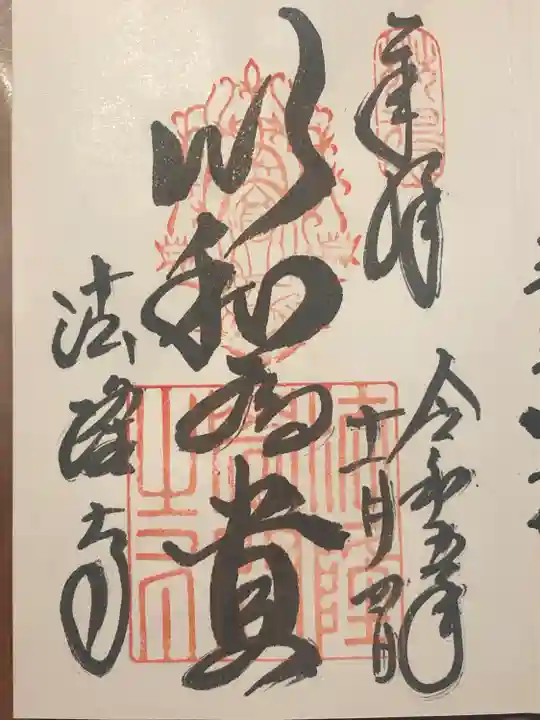 奉拝
令和五年
十一月四日
以和為貴
法隆寺